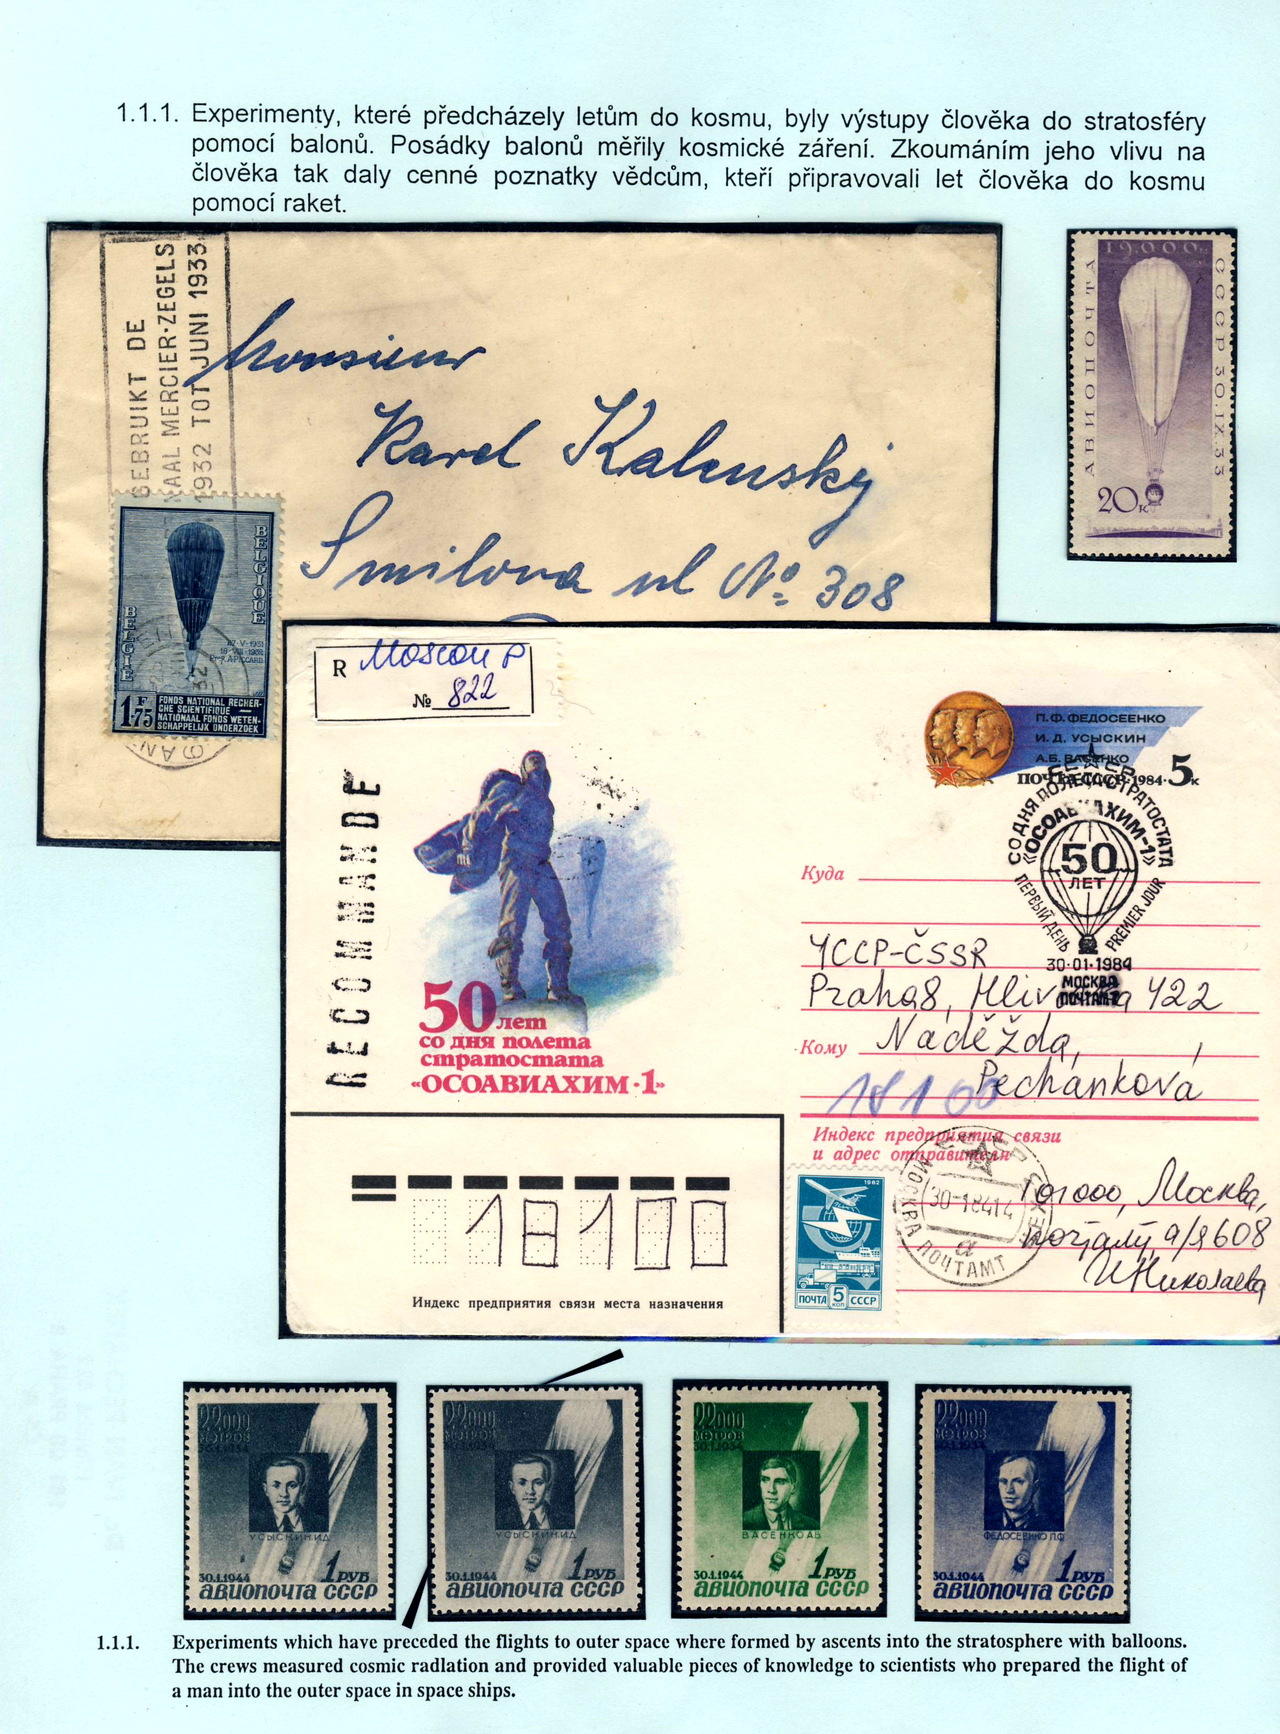 1.1.1. Experimenty, které předcházely letům do kosmu, byly výstupy člověka do stratosféry
pomocí balonů. Posádky balonů měřily kosmické záření. Zkoumáním jeho vlivu na
člověka tak daly cenné poznatky vědcům, kteří připravovali let člověka do kosmu
pomocí raket.
GEBRUIKT DE
NAAL MERCIER-ZEGELS
1932 TOT JUNI 1933
Monsieur
Karel Kalenský
Smilova ul No. 308
BELGIQUE
BELGIË
27-V-1931
18-VIII-1932
Prof. A. PICCARD
1F75
FONDS NATIONAL RECHER-
CHE SCIENTIFIQUE
NATIONAAL FONDS WETEN-
SCHAPPELIJK ONDERZOEK
19.000
АВИОПОЧТА
СССР 30.IX.33
20к
R Moscou P
№ 822
RECOMMANDE
50 лет
со дня полета
стратостата
«ОСОАВИАХИМ-1»
П.Ф. ФЕДОСЕЕНКО
И. Д. УСЫСКИН
А.Б. ВАСЕНКО
ПОЧТА СССР·1984· 5к
СО ДНЯ ПОЛЕТА СТРАТОСТАТА
«ОСОАВИАХИМ-1»
50
ЛЕТ
ПЕРВЫЙ ДЕНЬ PREMIER JOUR
30·01·1984
МОСКВА
ПОЧТАМТ
Куда
ЧССР-ČSSR
Praha8, 422
Кому Naděžda,
Pechánková
18100
Индекс предприятия связи
и адрес отправителя
101000, Москва,
почтамт, а/я 608
И Николаева
СССР
МОСКВА ПОЧТАМТ
30-1-84 14
а
1982
ПОЧТА 5 КОП СССР
18100
Индекс предприятия связи места назначения
22000
МЕТРОВ
30.1.1934
УСЫСКИН И.Д.
30.1.1944 1 РУБ
АВИОПОЧТА СССР
22000
МЕТРОВ
30.1.1934
УСЫСКИН И.Д.
30.1.1944 1 РУБ
АВИОПОЧТА СССР
22000
МЕТРОВ
30.1.1934
ВАСЕНКО А.Б.
30.1.1944 1 РУБ
АВИОПОЧТА СССР
22000
МЕТРОВ
30.1.1934
ФЕДОСЕЕНКО П.Ф.
30.1.1944 1 РУБ
АВИОПОЧТА СССР
1.1.1. Experiments which have preceded the flights to outer space where formed by ascents into the stratosphere with balloons.
The crews measured cosmic radlation and provided valuable pieces of knowledge to scientists who prepared the flight of
a man into the outer space in space ships.